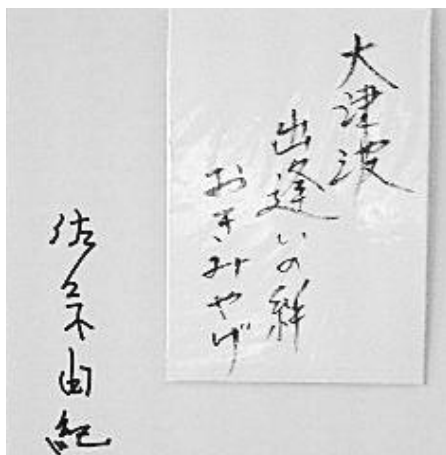 大津波
出逢いの絆
おきみやげ
佐々木由紀